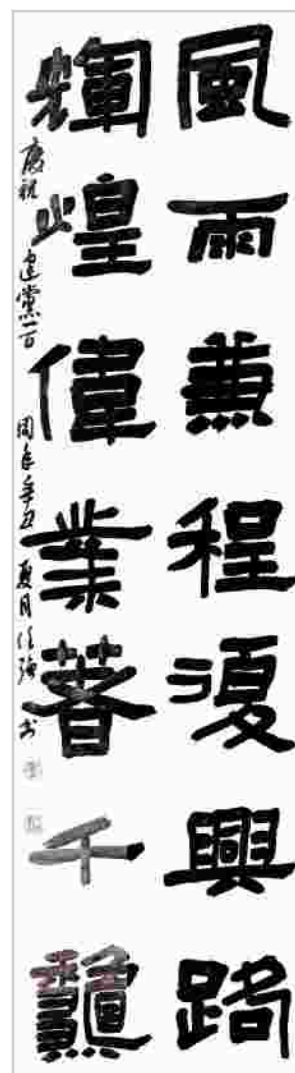 風雨兼程復興路
輝煌偉業著千龝
慶祝建黨一百周年辛丑夏月任强书